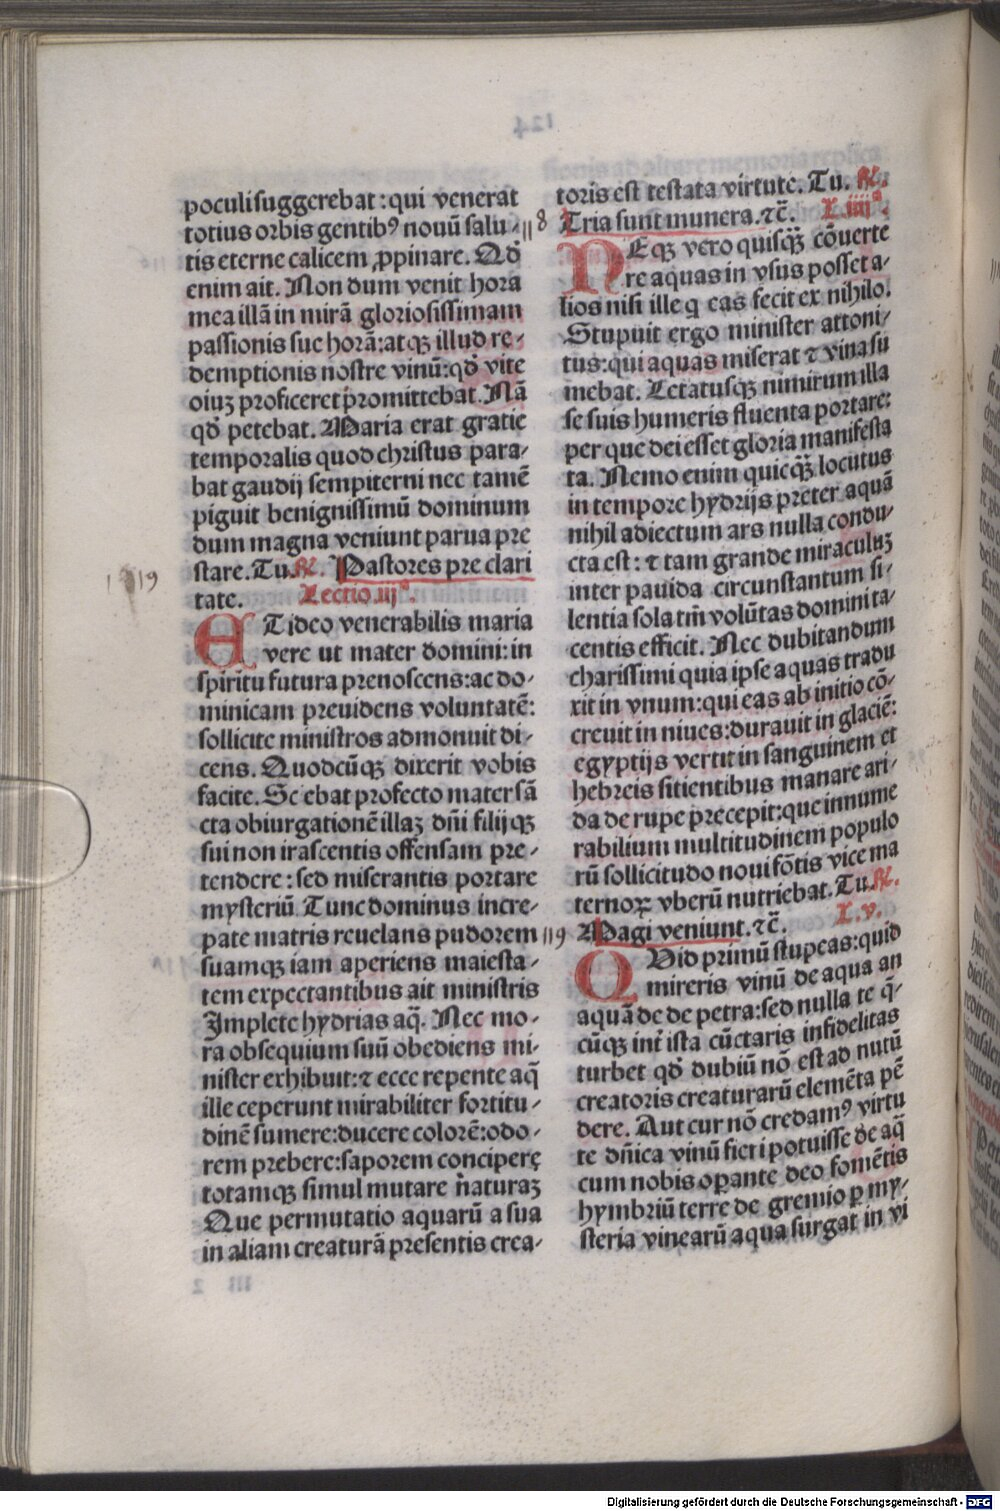 poculi suggerebat: qui venerat
totius orbis gentibꝰ nouū salu-
tis eterne calicem ꝓpinare. Qd̄
enim ait. Non dum venit hora
mea illā in mirā gloriosissimam
passionis sue horā: atqꝫ illud re-
demptionis nostre vinū: qd̄ vite
oiuꝫ proficeret promittebat. Nā
qd̄ petebat. Maria erat gratie
temporalis quod christus para-
bat gaudij sempiterni nec tamē
piguit benignissimū dominum
dum magna veniunt parua pre
stare. Tu. ℟. Pastores pre clari
tate. Lectio .iijª.
ET ideo venerabilis maria
vere ut mater domini: in
spiritu futura prenoscens: ac do-
minicam preuidens voluntatē:
sollicite ministros admonuit di-
cens. Quodcūqꝫ dixerit vobis
facite. Sc ebat profecto mater sā
cta obiurgationē illaꝫ dn̄i filij qꝫ
sui non irascentis offensam pre-
tendere: sed miserantis portare
mysteriū. Tunc dominus incre-
pate matris reuelans pudorem
suamqꝫ iam aperiens maiesta-
tem expectantibus ait ministris
Implete hydrias aq̄. Nec mo-
ra obsequium suū obediens mi-
nister exhibuit: ⁊ ecce repente aq̄
ille ceperunt mirabiliter fortitu-
dinē sumere: ducere colorē: odo-
rem prebere: saporem concipere
totamqꝫ simul mutare naturaꝫ
Que permutatio aquarū a sua
in aliam creaturā presentis crea-
toris est testata virtute. Tu. ℟.
Tria sunt munera. ⁊c̄. L. iiijª.
8
NEqꝫ vero quisqꝫ̄ cōuerte
re aquas in vsus posset a-
lios nisi ille q̄ eas fecit ex nihilo.
Stupuit ergo minister attoni-
tus: qui aquas miserat ⁊ vina su
mebat. Letatusqꝫ nimirum illa
se suis humeris fluenta portare:
per que dei esset gloria manifesta
ta. Nemo enim quicqꝫ̄ locutus
in tempore hydrijs preter aquā
nihil adiectum ars nulla condu-
cta est: ⁊ tam grande miraculuꝫ
inter pauida circunstantum si-
lentia sola tm̄ volūtas domini ta-
centis efficit. Nec dubitandum
charissimi quia ipse aquas tradu
xit in vnum: qui eas ab initio cō-
creuit in niues: durauit in glaciē:
egyptijs vertit in sanguinem et
hebreis sitientibus manare ari-
da de rupe precepit: que innume
rabilium multitudinem populo
rū sollicitudo noui fōtis vice ma
ternoꝝ vberū nutriebat. Tu. ℟.
Magi veniunt. ⁊c̄. L. v.
9
QVid primū stupeas: quid
mireris vinū de aqua an
aquā de de petra: sed nulla te q̄-
cūqꝫ int̄ ista cūctaris infidelitas
turbet qd̄ dubiū nō est ad nutū
creatoris creaturarū elemēta pē
dere. Aut cur nō credamꝰ virtu
te dn̄ica vinū fieri potuisse de aq̄
cum nobis oꝑante deo fomētis
hymbriū terre de gremio ꝑ my-
steria vinearū aqua surgat in vi
Digitalisierung gefördert durch die Deutsche Forschungsgemeinschaft - DFG